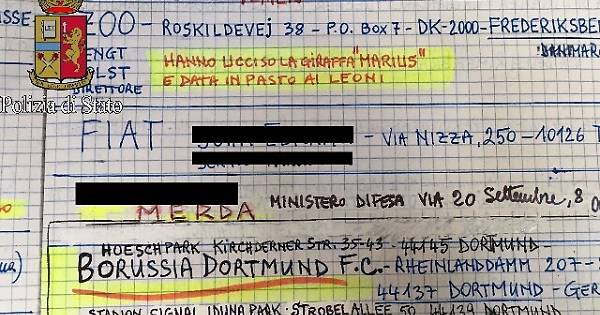 ASSE ZOO - ROSKILDEVEJ 38 - P.O. BOX 7 - DK-2000-FREDERIKSBE
DANMAR
ENGT HANNO UCCISO LA GIRAFFA "MARIUS"
OLST E DATA IN PASTO AI LEONI
DIRETTORE
Polizia di Stato
FIAT - VIA NIZZA, 250-10126 T
MINISTERO DIFESA VIA 20 Settembre, 8
MERDA
HOESCHPARK KIRCHDERNER STR. 35-43 - 44145 DORTMUND -
BORUSSIA DORTMUND F.C. - RHEINLANDDAMM 207-
44137 DORTMUND - GER
STADION SIGNAL IDUNA PARK - STROBELALLEE 50 44139 DORTMUND